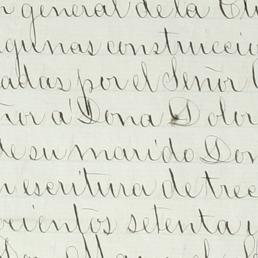 general de la
algunas construccio
adas por el Señor
ñor a Dona Dolor
de su marido Don
escritura de trec
cientos setenta y